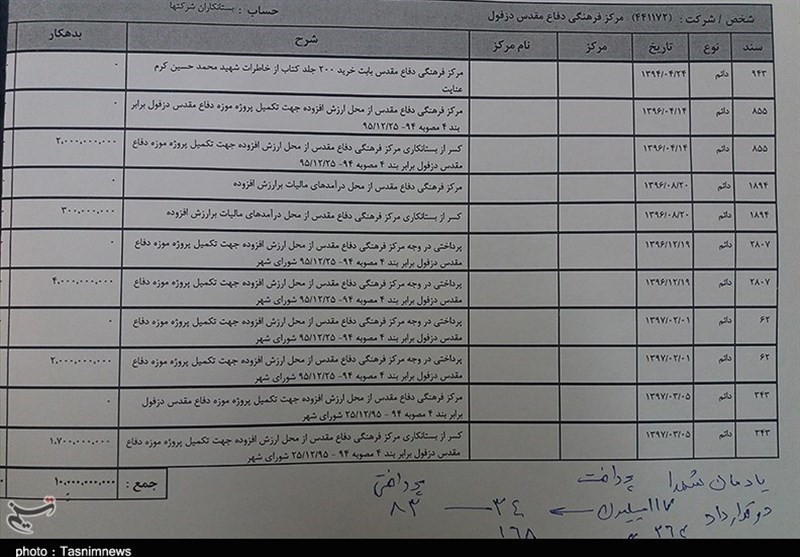 شخص / شرکت : (۴۴۱۱۷۲) مرکز فرهنگی دفاع مقدس دزفول حساب : بستانکاران شرکتها
سند نوع تاریخ مرکز نام مرکز شرح بدهکار
۹۴۳ دائم ۱۳۹۴/۰۴/۲۴ مرکز فرهنگی دفاع مقدس بابت خرید ۲۰۰ جلد کتاب از خاطرات شهید محمد حسین کرم ۰
عنایت
۸۵۵ دائم ۱۳۹۶/۰۴/۱۴ مرکز فرهنگی دفاع مقدس از محل ارزش افزوده جهت تکمیل پروژه موزه دفاع مقدس دزفول برابر ۰
بند ۴ مصوبه ۹۴- ۹۵/۱۲/۲۵
۸۵۵ دائم ۱۳۹۶/۰۴/۱۴ کسر از بستانکاری مرکز فرهنگی دفاع مقدس از محل ارزش افزوده جهت تکمیل پروژه موزه دفاع ۲,۰۰۰,۰۰۰,۰۰۰
مقدس دزفول برابر بند ۴ مصوبه ۹۴- ۹۵/۱۲/۲۵
۱۸۹۴ دائم ۱۳۹۶/۰۸/۲۰ مرکز فرهنگی دفاع مقدس از محل درآمدهای مالیات برارزش افزوده ۰
۱۸۹۴ دائم ۱۳۹۶/۰۸/۲۰ کسر از بستانکاری مرکز فرهنگی دفاع مقدس از محل درآمدهای مالیات برارزش افزوده ۳۰۰,۰۰۰,۰۰۰
۲۸۰۷ دائم ۱۳۹۶/۱۲/۱۹ پرداختی در وجه مرکز فرهنگی دفاع مقدس از محل ارزش افزوده جهت تکمیل پروژه موزه دفاع ۰
مقدس دزفول برابر بند ۴ مصوبه ۹۴- ۹۵/۱۲/۲۵ شورای شهر
۲۸۰۷ دائم ۱۳۹۶/۱۲/۱۹ پرداختی در وجه مرکز فرهنگی دفاع مقدس از محل ارزش افزوده جهت تکمیل پروژه موزه دفاع ۴,۰۰۰,۰۰۰,۰۰۰
مقدس دزفول برابر بند ۴ مصوبه ۹۴- ۹۵/۱۲/۲۵ شورای شهر
۶۲ دائم ۱۳۹۷/۰۲/۰۱ پرداختی در وجه مرکز فرهنگی دفاع مقدس از محل ارزش افزوده جهت تکمیل پروژه موزه دفاع ۰
مقدس دزفول برابر بند ۴ مصوبه ۹۴- ۹۵/۱۲/۲۵ شورای شهر
۶۲ دائم ۱۳۹۷/۰۲/۰۱ پرداختی در وجه مرکز فرهنگی دفاع مقدس از محل ارزش افزوده جهت تکمیل پروژه موزه دفاع ۲,۰۰۰,۰۰۰,۰۰۰
مقدس دزفول برابر بند ۴ مصوبه ۹۴- ۹۵/۱۲/۲۵ شورای شهر
۳۴۳ دائم ۱۳۹۷/۰۳/۰۵ مرکز فرهنگی دفاع مقدس از محل ارزش افزوده جهت تکمیل پروژه موزه دفاع مقدس دزفول ۰
برابر بند ۴ مصوبه ۹۴ - ۲۵/۱۲/۹۵ شورای شهر
۳۴۳ دائم ۱۳۹۷/۰۳/۰۵ کسر از بستانکاری مرکز فرهنگی دفاع مقدس از محل ارزش افزوده جهت تکمیل پروژه موزه دفاع ۱,۷۰۰,۰۰۰,۰۰۰
مقدس دزفول برابر بند ۴ مصوبه ۹۴ - ۲۵/۱۲/۹۵ شورای شهر
جمع : ۱۰,۰۰۰,۰۰۰,۰۰۰
یادمان شهدا پرداخت پرداختی
دو قرارداد ۳۴ ۸۳
۱۶۸
photo : Tasnimnews